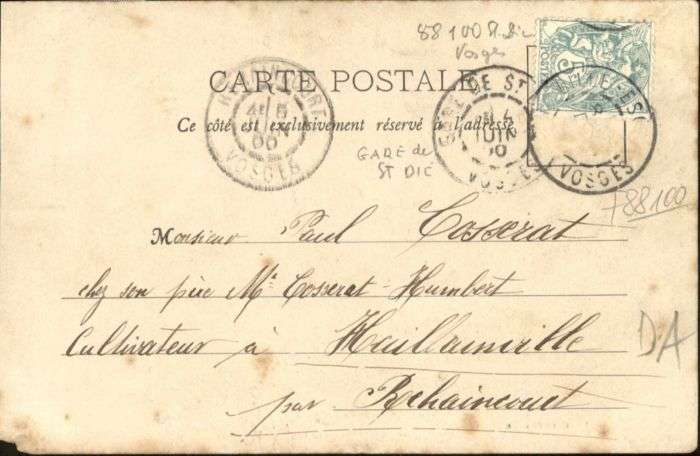 88100 St Dié
Vosges
CARTE POSTALE
Ce côté est exclusivement réservé à l'adresse
GARE de
ST DIÉ
GARE DE ST
JUIN
VOSGES
VOSGES
VOSGES
+88100
Monsieur Paul Cosserat
chez son père Mr Cosserat-Humbert
Cultivateur à Haillainville
par Rehaincourt
DA